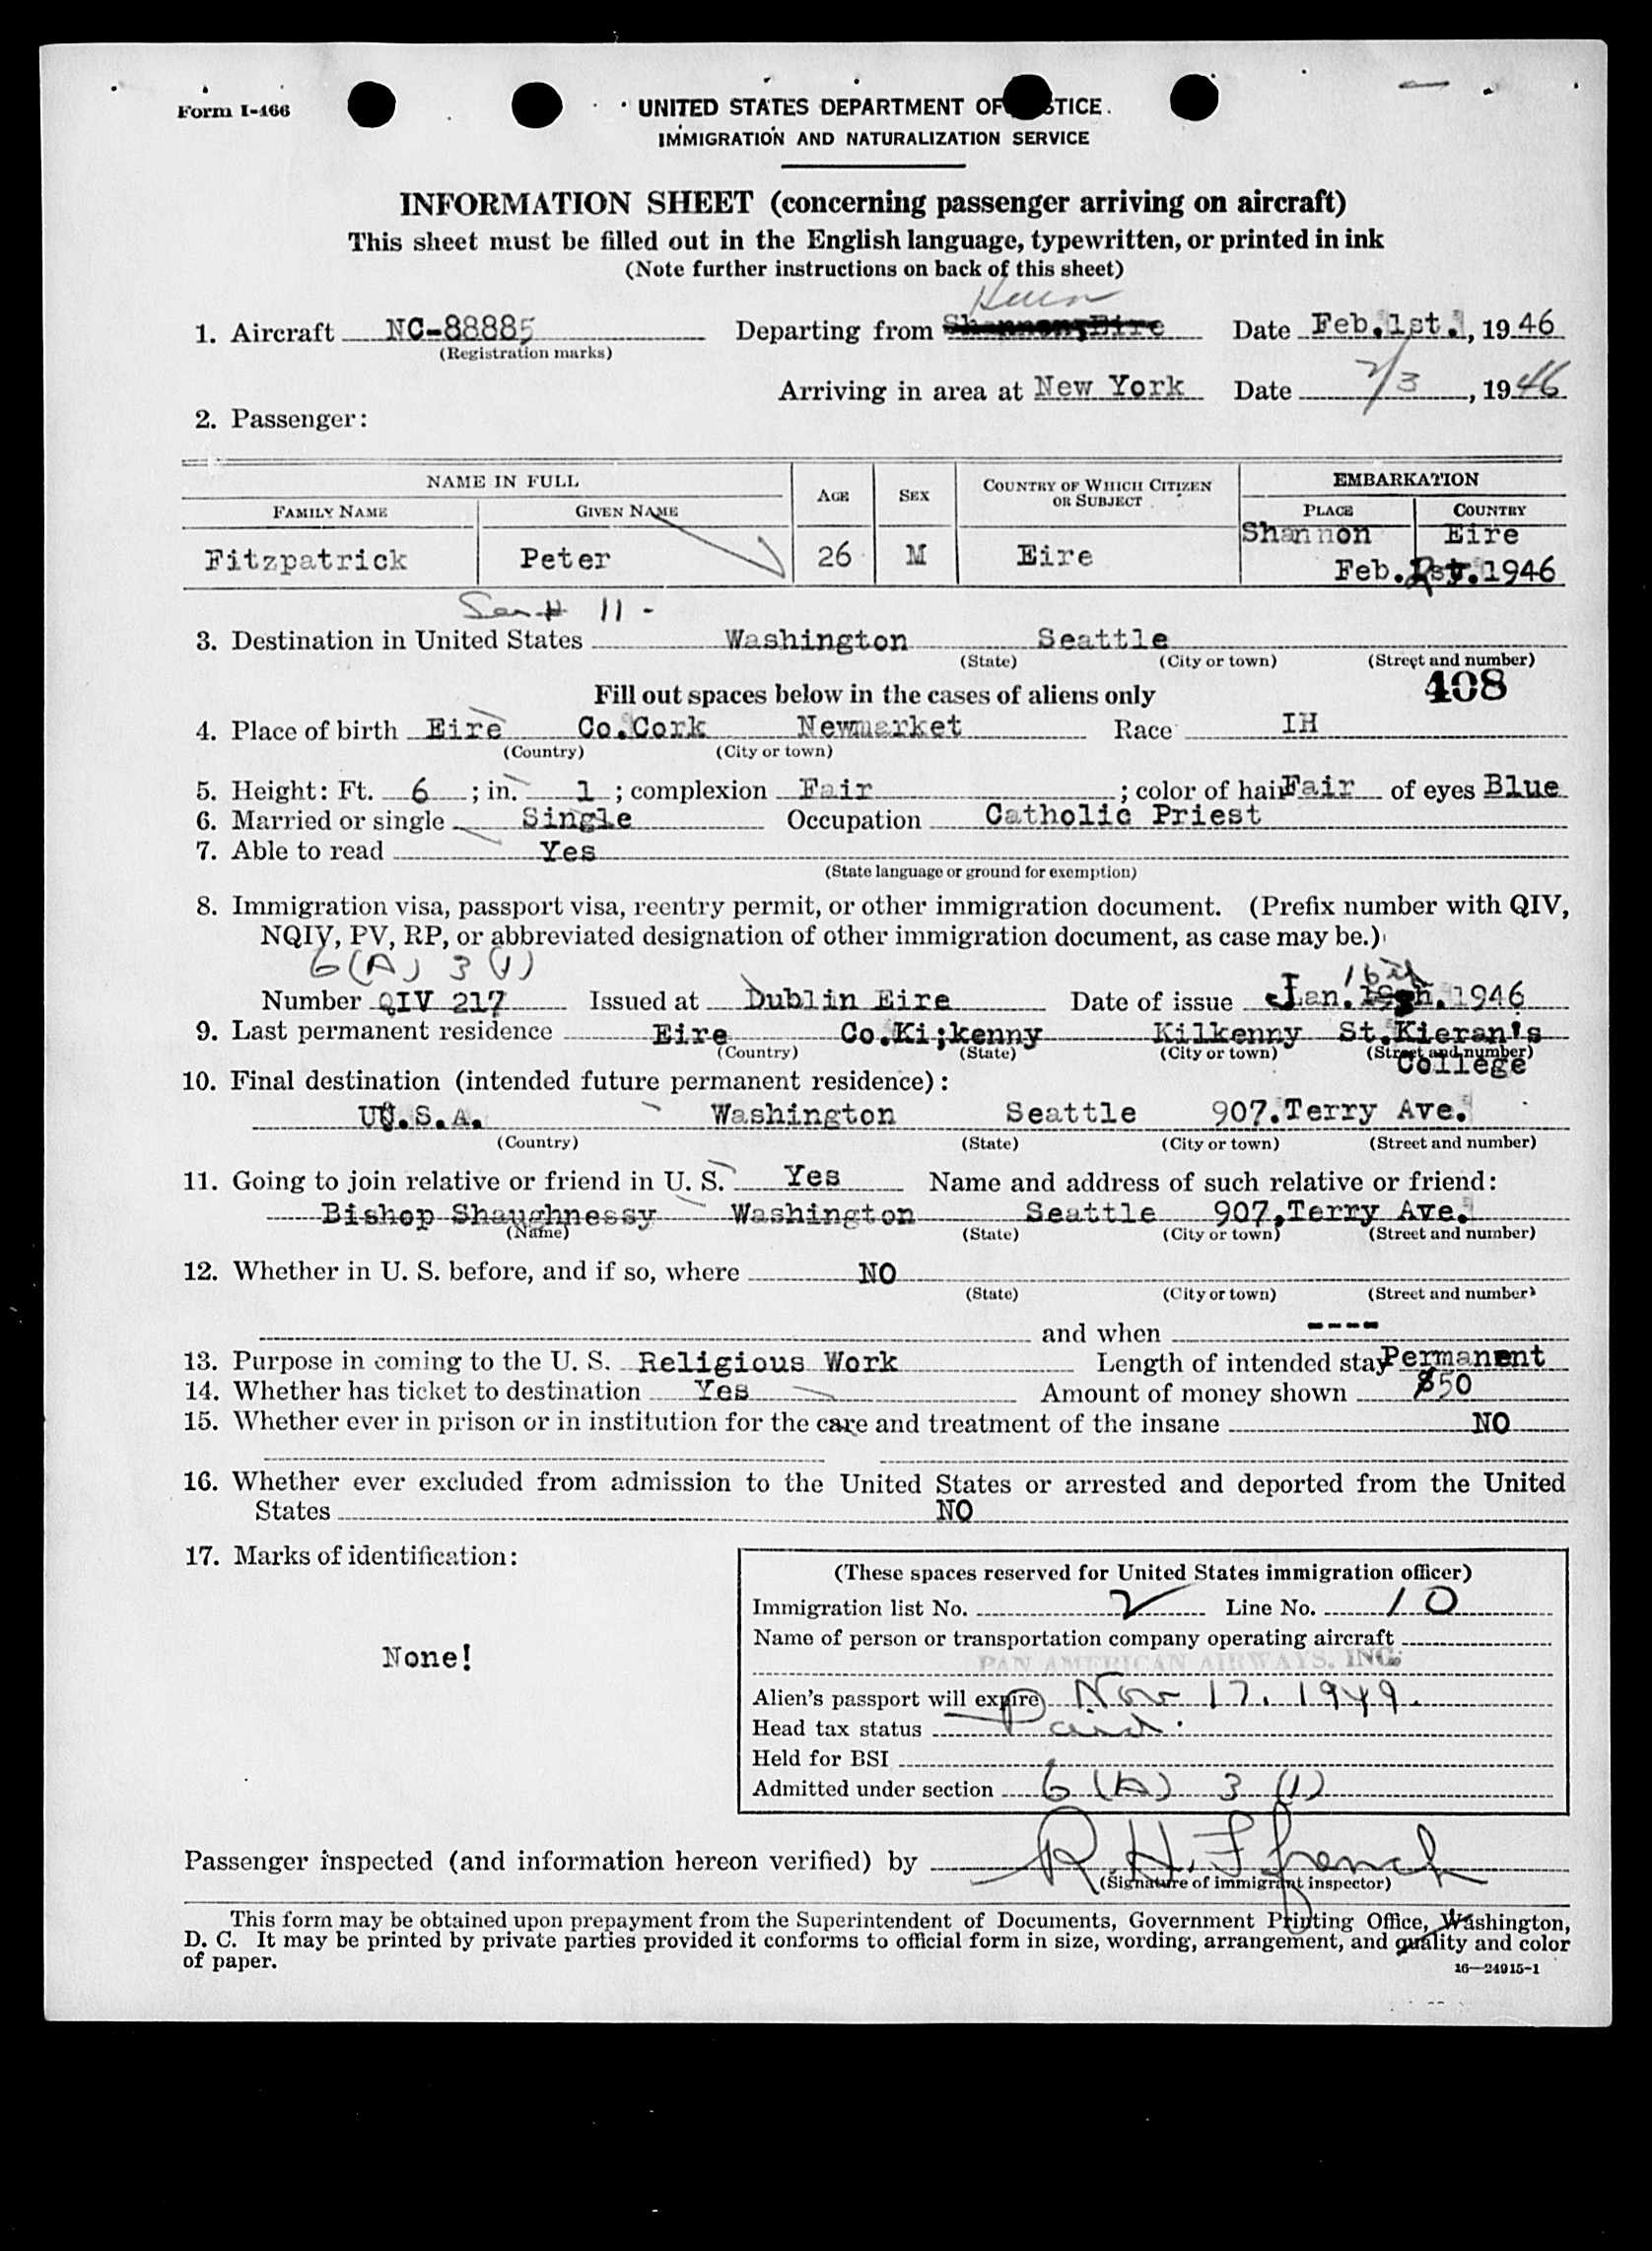 Form I-466
UNITED STATES DEPARTMENT OF JUSTICE
IMMIGRATION AND NATURALIZATION SERVICE
INFORMATION SHEET (concerning passenger arriving on aircraft)
This sheet must be filled out in the English language, typewritten, or printed in ink
(Note further instructions on back of this sheet)
1. Aircraft NC-88885 Departing from Shannon,Eire Date Feb.1st., 1946
(Registration marks)
Arriving in area at New York Date 2/3, 1946
2. Passenger:
NAME IN FULL AGE SEX COUNTRY OF WHICH CITIZEN OR SUBJECT EMBARKATION
FAMILY NAME GIVEN NAME PLACE COUNTRY
Fitzpatrick Peter 26 M Eire Shannon Eire
Feb. 1946
11 -
3. Destination in United States Washington Seattle
(State) (City or town) (Street and number)
Fill out spaces below in the cases of aliens only 408
4. Place of birth Eire Co.Cork Newmarket Race IH
(Country) (City or town)
5. Height: Ft. 6; in. 1; complexion Fair; color of hair Fair of eyes Blue
6. Married or single Single Occupation Catholic Priest
7. Able to read Yes
(State language or ground for exemption)
8. Immigration visa, passport visa, reentry permit, or other immigration document. (Prefix number with QIV,
NQIV, PV, RP, or abbreviated designation of other immigration document, as case may be.)
6(A) 3(1)
Number QIV 217 Issued at Dublin Eire Date of issue Jan. 16th 1946
9. Last permanent residence Eire Co.Ki;kenny Kilkenny St.Kieran's
(Country) (State) (City or town) (Street and number)
College
10. Final destination (intended future permanent residence):
UU.S.A. Washington Seattle 907.Terry Ave.
(Country) (State) (City or town) (Street and number)
11. Going to join relative or friend in U. S. Yes Name and address of such relative or friend:
Bishop Shaughnessy Washington Seattle 907,Terry Ave.
(Name) (State) (City or town) (Street and number)
12. Whether in U. S. before, and if so, where NO
(State) (City or town) (Street and number)
and when ----
13. Purpose in coming to the U. S. Religious Work Length of intended stay Permanent
14. Whether has ticket to destination Yes Amount of money shown $50
15. Whether ever in prison or in institution for the care and treatment of the insane NO
16. Whether ever excluded from admission to the United States or arrested and deported from the United
States NO
17. Marks of identification:
None!
(These spaces reserved for United States immigration officer)
Immigration list No. 2 Line No. 10
Name of person or transportation company operating aircraft
PAN AMERICAN AIRWAYS, INC.
Alien's passport will expire Nov 17. 1949.
Head tax status Paid.
Held for BSI
Admitted under section 6(A) 3(1)
Passenger inspected (and information hereon verified) by R. H. Ffrench
(Signature of immigrant inspector)
This form may be obtained upon prepayment from the Superintendent of Documents, Government Printing Office, Washington,
D. C. It may be printed by private parties provided it conforms to official form in size, wording, arrangement, and quality and color
of paper.
16—24915-1